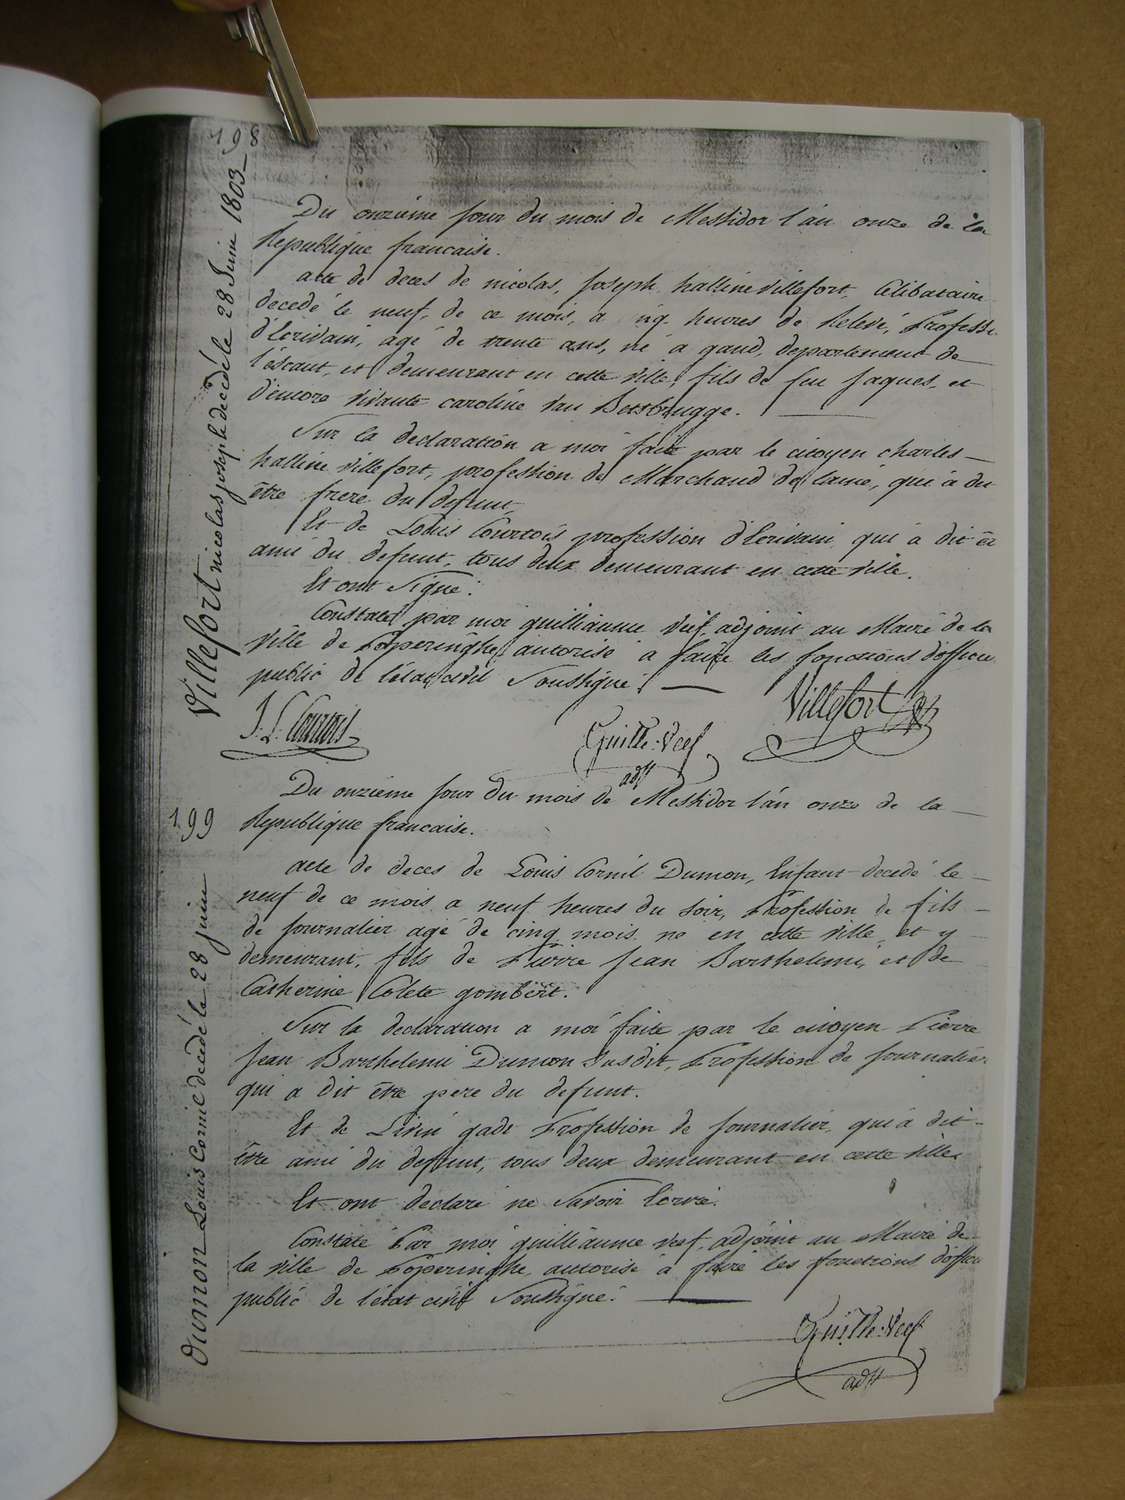 198
Villefort nicolas joseph decédé le 28 Juin 1803
Du onzième jour du mois de Messidor l'an onze de la
Republique francaise.
acte de deces de nicolas, Joseph halline Villefort, Celibataire
decedé le neuf, de ce mois, a heures de Relevé, Professi
d'Ecrivain, agé de trente ans, né a gand, departement de
l'escaut, et demeurant en cette ville, fils de feu Jaques, et
d'encore vivante caroline Van
Sur la declaration a moi faite par le citoyen charles
halline villefort, profession de Marchand de laine, qui à dit
être frere du defunt
Et de Louis Courtois profession d'Ecrivain qui à dit être
ami du defunt, tous deux demeurant en cette ville.
Et ont Signé.
Constaté par moi guilliaume Veef, adjoint au Maire de la
Ville de Poperinghe, autorisé a faire les fonctions d'officier
public de l'état civil Soussigné.
J. L. Courtois
Guille: Veef
adjt
Villefort
199
Dumon Louis Cornil decédé le 28 juin
Du onzième jour du mois de Messidor l'an onze de la
Republique francaise.
acte de deces de Louis Cornil Dumon, Enfant decedé le
neuf de ce mois a neuf heures du soir, Profession de fils
de Journalier agé de cinq mois né en cette ville, et y
demeurant, fils de Pierre Jean Barthelemi, et de
Catherine Colete gombert.
Sur la declaration a moi faite par le citoyen Pierre
Jean Barthelemi Dumon Susdit, Profession de Journalier
qui a dit être pere du defunt.
Et de gade Profession de Journalier, qui à dit
être ami du defunt, tous deux demeurant en cette ville
Et ont declaré ne Savoir Ecrire.
Constaté Par moi guilliaume veef, adjoint au Maire de
la ville de Poperinghe, autorisé à faire les fonctions d'officier
public de l'état civil Soussigné.
Guille: Veef
adjt